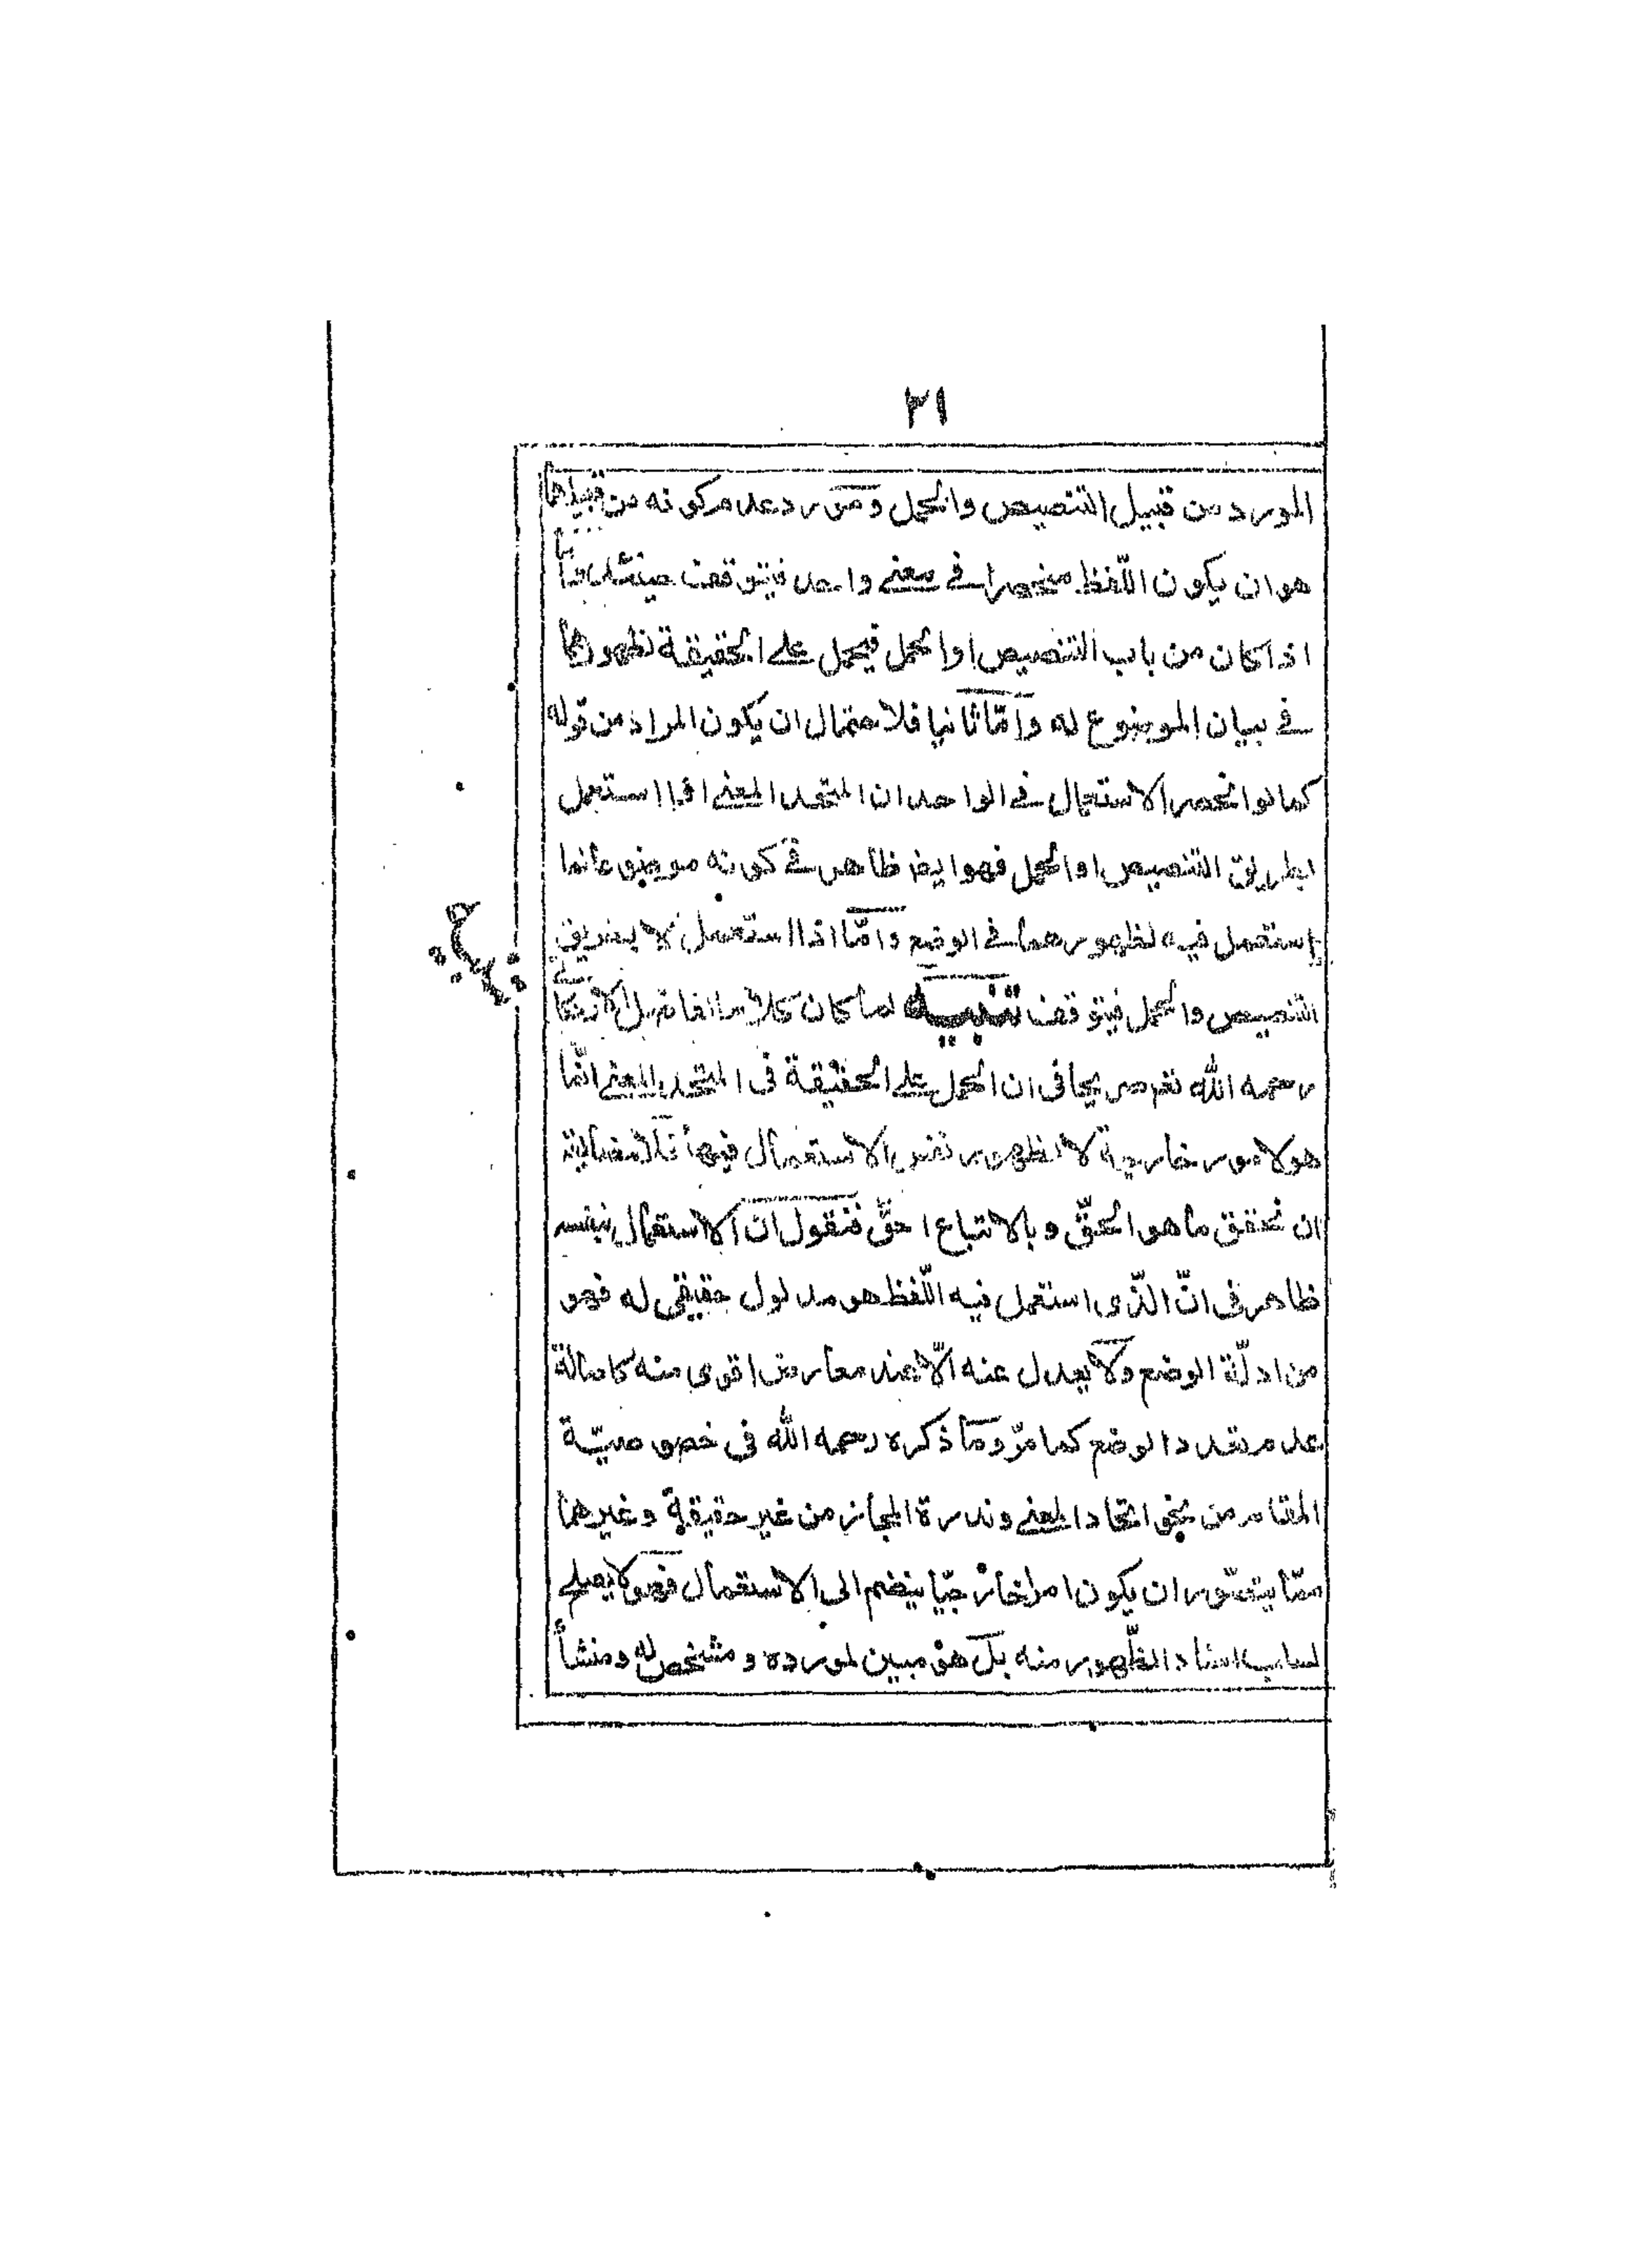 ٢١
المورد من قبيل التنصيص والحمل ومورد عدم كونه من قبيلهما
هو ان يكون اللّفظ منحصرا في معنى واحد فيتوقف حينئذ وامّا
اذا كان من باب التنصيص او الحمل فيحمل على الحقيقة لظهورهما
في بيان الموضوع له وامّا ثانيا فلاحتمال ان يكون المراد من قوله
كما لو انحصر الاستعمال في الواحد ان المتحد المعنى اذا استعمل
بطريق التنصيص او الحمل فهو ايضا ظاهر في كونه موضوعا لما
استعمل فيه لظهورهما في الوضع وامّا اذا استعمل لا بطريق
التنصيص والحمل فيتوقف تنبيه لما كان كلام الفاضل
رحمه الله تصريحا في ان الحمل على الحقيقة في المتحد المعنى انّما
هو لامور خارجية لا لظهور نفس الاستعمال فيها فلا
ان نحقق ما هو الحقّ وبالاتباع احقّ فنقول ان الاستعمال بنفسه
ظاهر في انّ الذّى استعمل فيه اللّفظ هو مدلول حقيقي له فهو
من ادلّة الوضع ولا يعدل عنه الّا عند معارض اقوى منه كاصالة
عدم تعدد الوضع كما مرّ وما ذكره رحمه الله في خصوصيّة
المقام من نحو اتحاد المعنى وندرة المجاز من غير حقيقة وغيرهما
ممّا يتصّور ان يكون امرا خارجيّا ينضم الى الاستعمال فهو لا يصلح
لسلب اسناد الظّهور منه بل هو مبين لمورده ومشخص له ومنشأ